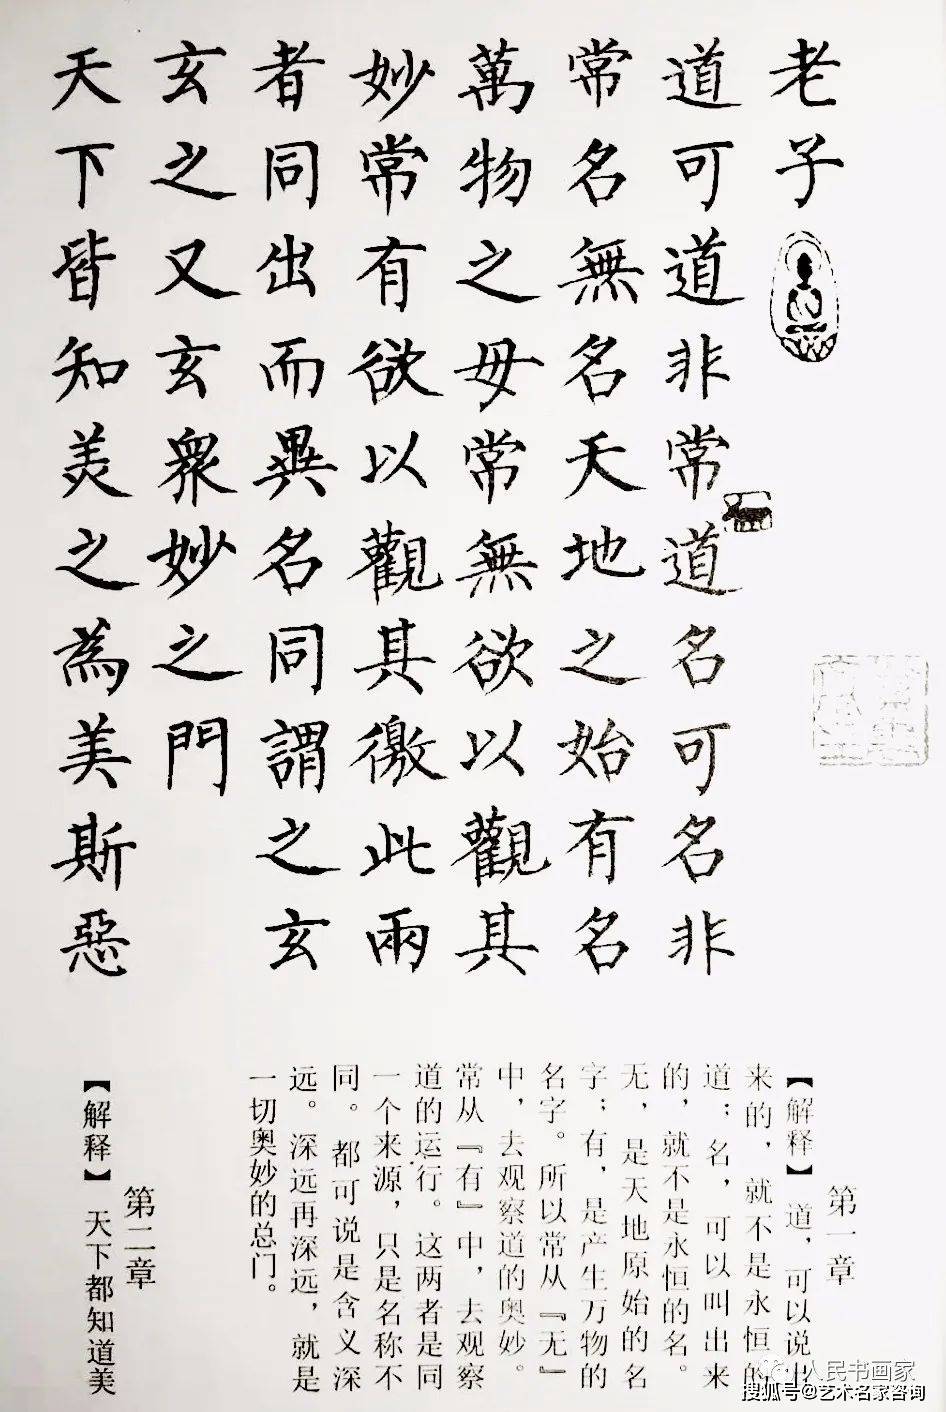 老子
道可道非常道名可名非
常名無名天地之始有名
萬物之母常無欲以觀其
妙常有欲以觀其徼此兩
者同出而異名同謂之玄
玄之又玄衆妙之門
天下皆知美之為美斯惡
第一章
【解释】道，可以说出
来的，就不是永恒的
道；名，可以叫出来
的，就不是永恒的名。
无，是天地原始的名
字；有，是产生万物的
名字。所以常从『无』
中，去观察道的奥妙。
常从『有』中，去观察
道的运行。这两者是同
一个来源，只是名称不
同。都可说是含义深
远。深远再深远，就是
一切奥妙的总门。
第二章
【解释】天下都知道美
人民书画家
搜狐号@艺术名家咨询